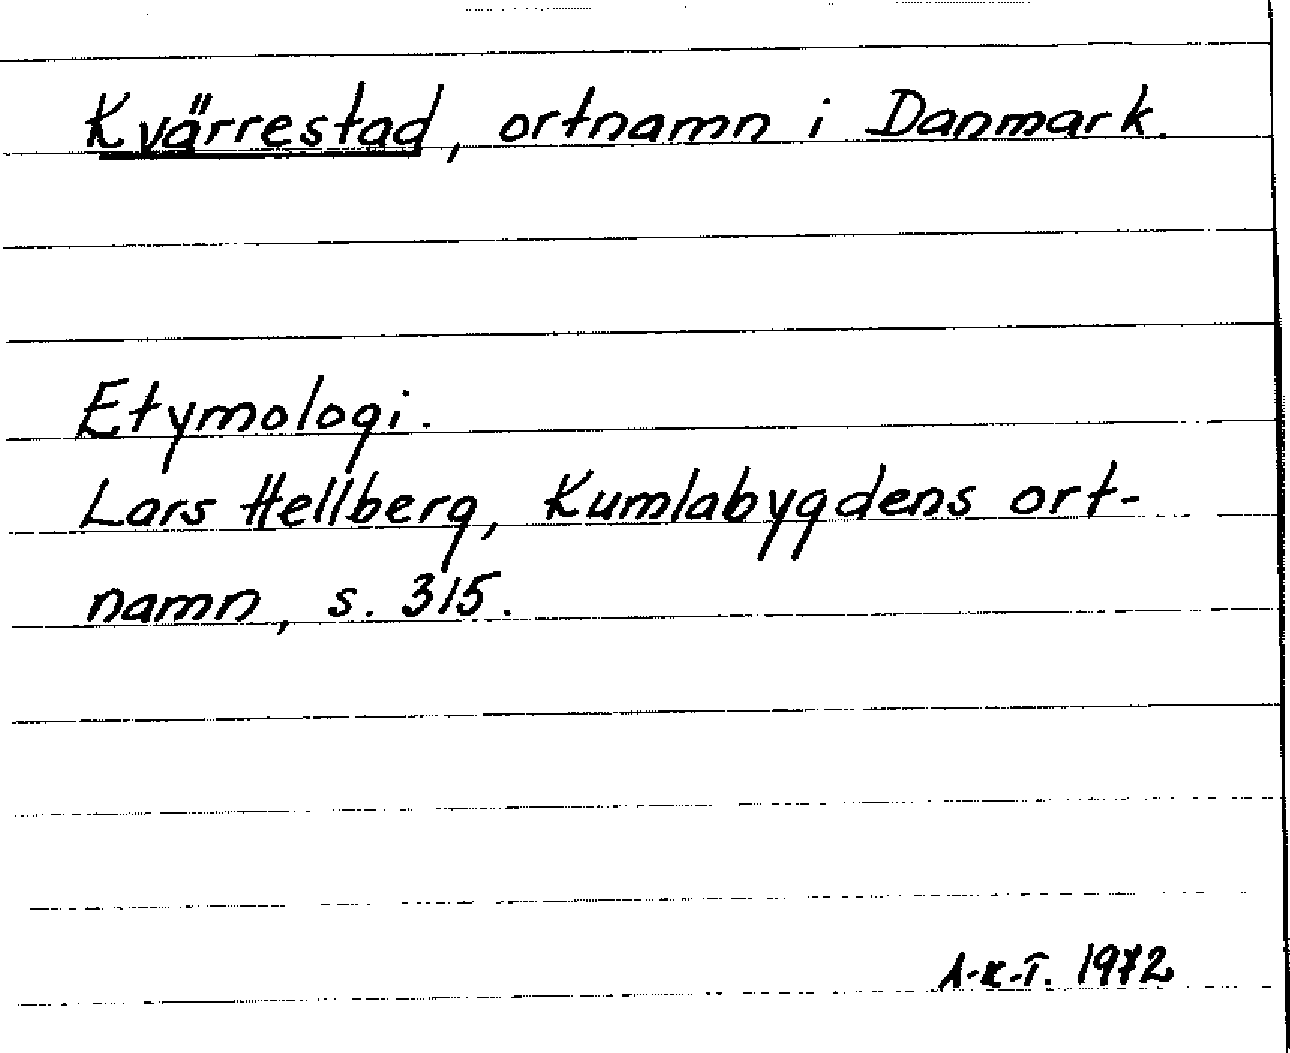 Kvärrestad, ortnamn i Danmark.
Etymologi.
Lars Hellberg, Kumlabygdens ort-
namn, s. 315.
A-K-T. 1972